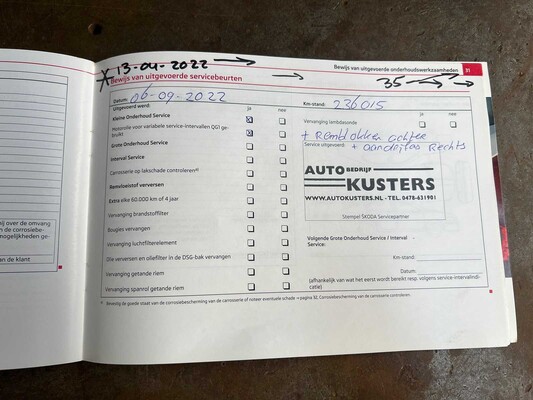 Bewijs van uitgevoerde onderhoudswerkzaamheden 31
* 13-04-2022 →
Bewijs van uitgevoerde servicebeurten → 35 →
Datum: 06-09-2022 Km-stand: 236015
Uitgevoerd werd: ja nee ja nee
Kleine Onderhoud Service
Vervanging lambdasonde
Motorolie voor variabele service-intervallen QG1 ge-
bruikt
+ Remblokken achter
Grote Onderhoud Service
Service uitgevoerd: + aandrijfas Rechts
Interval Service
Carrosserie op lakschade controleren
Remvloeistof verversen
Extra elke 60.000 km of 4 jaar
Vervanging brandstoffilter
Bougies vervangen
Vervanging luchtfilterelement
Olie verversen en oliefilter in de DSG-bak vervangen
Vervanging getande riem
Vervanging spanrol getande riem
AUTO BEDRIJF
KUSTERS
WWW.AUTOKUSTERS.NL - TEL. 0478-631901
Stempel ŠKODA Servicepartner
Volgende Grote Onderhoud Service / Interval
Service:
Km-stand:
Datum:
(afhankelijk van wat het eerst wordt bereikt resp. volgens service-intervalindi-
catie)
Bevestig de goede staat van de corrosiebescherming van de carrosserie of noteer eventuele schade → pagina 32, Corrosiebescherming van de carrosserie controleren
hij over de omvang
n de corrosiebe-
mogelijkheden ge-
an de klant